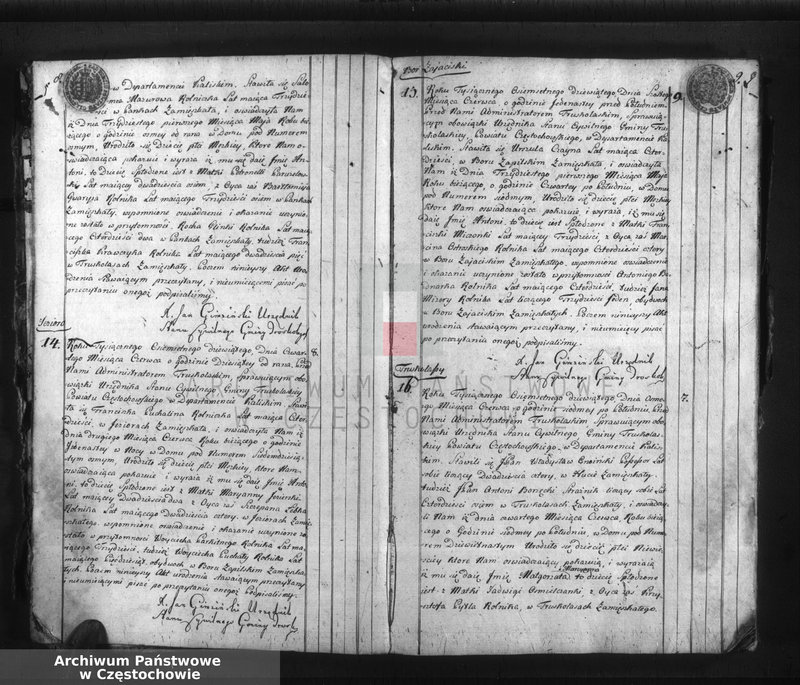 w Departamencie Kaliskim. Stawiła się Salo
Mazurowa Rolniczka Lat maiąca Trzydzie
w Pankach Zamięszkała, i oświadczyła Nam
iż Dnia Trzydziestego pierwszego Miesiąca Maja Roku bie
żącego o godzinie osmey od rana w Domu pod Numerem
osmym, Urodziło się dziecie płci Męskiey, Ktore Nam o-
świadczaiąca pokazuie i wyraża iż mu się daie Jmię An
toni, to dziecie Spłodzone iest z Matki Petronelli
Lat maiącey dwadzieścia osiem, z Oyca zaś Bartłomieja
Gwaryja Rolnika Lat maiącego Trzydzieści osiem w Pankach
Zamięszkały, wspomnione oświadczenie i okazanie uczynio
ne zostało w przytomności, Rocha Glinki Rolnika Lat maią
cego Czterdzieści dwa w Pankach Zamięszkały, tudzież Fran
ciszka Krawczyka Rolnika Lat maiącego dwadzieścia pięć
w Truskolasach Zamięszkały. Poczem ninieyszy Akt Uro
dzenia Stawaiącym przeczytany, i nieumieiącemi pisać po
przeczytaniu onegoż podpisaliśmy.
X. Jan Ginziński Urzędnik
Stanu Cywilnego Gminy Truskolasy
Jeziora
14.
Roku Tysiącznego Osmsetnego dziewiątego, Dnia Czwar
tego Miesiąca Czerwca o godzinie Dziewiątey od rana, Przed
Nami Administratorem Truskolaskim, sprawuiącym obo
wiązki Urzędnika Stanu Cywilnego Gminy Truskolaskiey
Powiatu Częstochowskiego w Departamencie Kaliskim. Stawi
ła się Franciszka Puchalina Rolniczka Lat maiąca Czter
dzieści, w Jeziorach Zamięszkała, i oświadczyła Nam iż
Dnia drugiego Miesiąca Czerwca Roku bieżącego o godzinie
Jedenastey w Nocy w Domu pod Numerem Siedmdziesią
tym osmym, Urodziło się dziecie płci Męskiey, ktore Nam
oświadczaiąca pokazuie i wyraża iż mu się daie Jmię Anto
ni, to dziecie Spłodzone iest z Matki Maryanny
Lat maiącey Dwadzieścia dwa z Oyca zaś Szczepana
Rolnika Lat maiącego Dwadzieścia cztery, w Jeziorach Zamię
szkałego. wspomnione oświadczenie i okazanie uczynione zo
stało w przytomności Woyciecha Rolnika Lat ma
iącego Trzydzieści, tudzież Woyciecha Puchały Rolnika Lat
maiącego Pięćdziesiąt, obydwoch w Boru Zapilskim Zamięszka
łych. Poczem ninieyszy Akt urodzenia stawaiącym przeczytany
i nieumieiącymi pisać po przeczytaniu onegoż Podpisaliśmy.
X. Jan Ginziński Urzędnik
Stanu Cywilnego Gminy
8.
Bor Zajaciski
15.
Roku Tysiącznego Osmsetnego dziewiątego Dnia
Miesiąca Czerwca, o godzinie Jedenastey przed południem
Przed Nami Administratorem Truskolaskim, Sprawuią
cym obowiązki Urzędnika Stanu Cywilnego Gminy Trus
kolaskiey, Powiatu Częstochowskiego, w Departamencie Ka
liskim. Stawiła się Urszula Lat maiąca Czter
dzieści, w Boru Zapilskim Zamięszkała, i oświadczyła
Nam iż Dnia Trzydziestego pierwszego Miesiąca Maja
Roku bieżącego, o godzinie Czwartey po południu, w Domu
pod Numerem siodmym, Urodziło się dziecie płci Męskiey
ktore Nam oświadczaiąca pokazuie i wyraża, iż mu się
daie Jmię Antoni. to dziecie iest Spłodzone z Matki Fran
ciszki Lat maiącey Trzydzieści, z Oyca zaś Mar
cina Rolnika Lat maiącego Czterdzieści cztery
w Boru Zajaciskim Zamięszkałego, wspomnione oświadczenie
i okazanie uczynione zostało w przytomności Antoniego Be
dnarka Rolnika Lat maiącego Czterdzieści, tudzież Jana
Mizery Rolnika Lat liczącego Trzydzieści Jeden, obydwoch
w Boru Zajaciskim Zamięszkałych. Poczem ninieyszy Akt
urodzenia stawaiącym przeczytany, i nieumieiący pisać
po przeczytaniu onegoż, podpisaliśmy.
X. Jan Ginziński Urzędnik
Stanu Cywilnego Gminy
9.
Truskolasy
16.
Roku Tysiącznego Osmsetnego dziewiątego, Dnia Osme
go Miesiąca Czerwca, o godzinie siodmey po południu, Przed
Nami Administratorem Truskolaskim Sprawuiącym obo
wiązki Urzędnika Stanu Cywilnego, Gminy Truskolas
kiey Powiatu Częstochowskiego, w Departamencie Kalis
kim. Stawił się Jan Władysław Professor Lat
sobie liczący Dwadzieścia cztery, w Hucie Zamięszkały.
tudzież Jan Antoni Borzęcki Strażnik liczący sobie Lat
Czterdzieści osiem w Truskolasach Zamięszkały, i oświadczy
li Nam iż dnia czwartego Miesiąca Czerwca, Roku bieżą
cego o Godzinie siodmey po południu, w domu pod Nu
merem Dziewiętnastym Urodziło się dziecie płci Niewie
ściey ktore Nam oświadczaiący pokazuią, i wyrażaią
iż mu się daie Jmię Małgorzata to dziecie Spłodzone
iest z Matki Jadwigi z Oyca zaś Krzy
sztofa Rolnika, w Truskolasach Zamięszkałego.
7.
ARCHIWUM PAŃSTWOWE
W CZĘSTOCHOWIE
Archiwum Państwowe
w Częstochowie